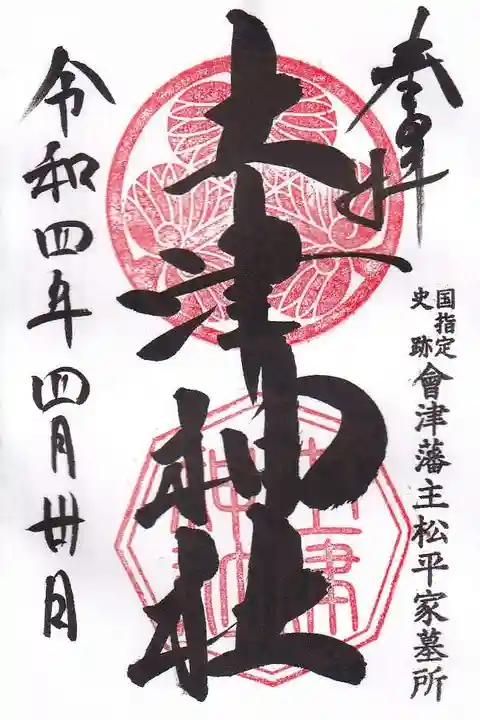 奉拝
国指定
史跡
會津藩主松平家墓所
土津神社
土津
神社
令和四年四月卅日